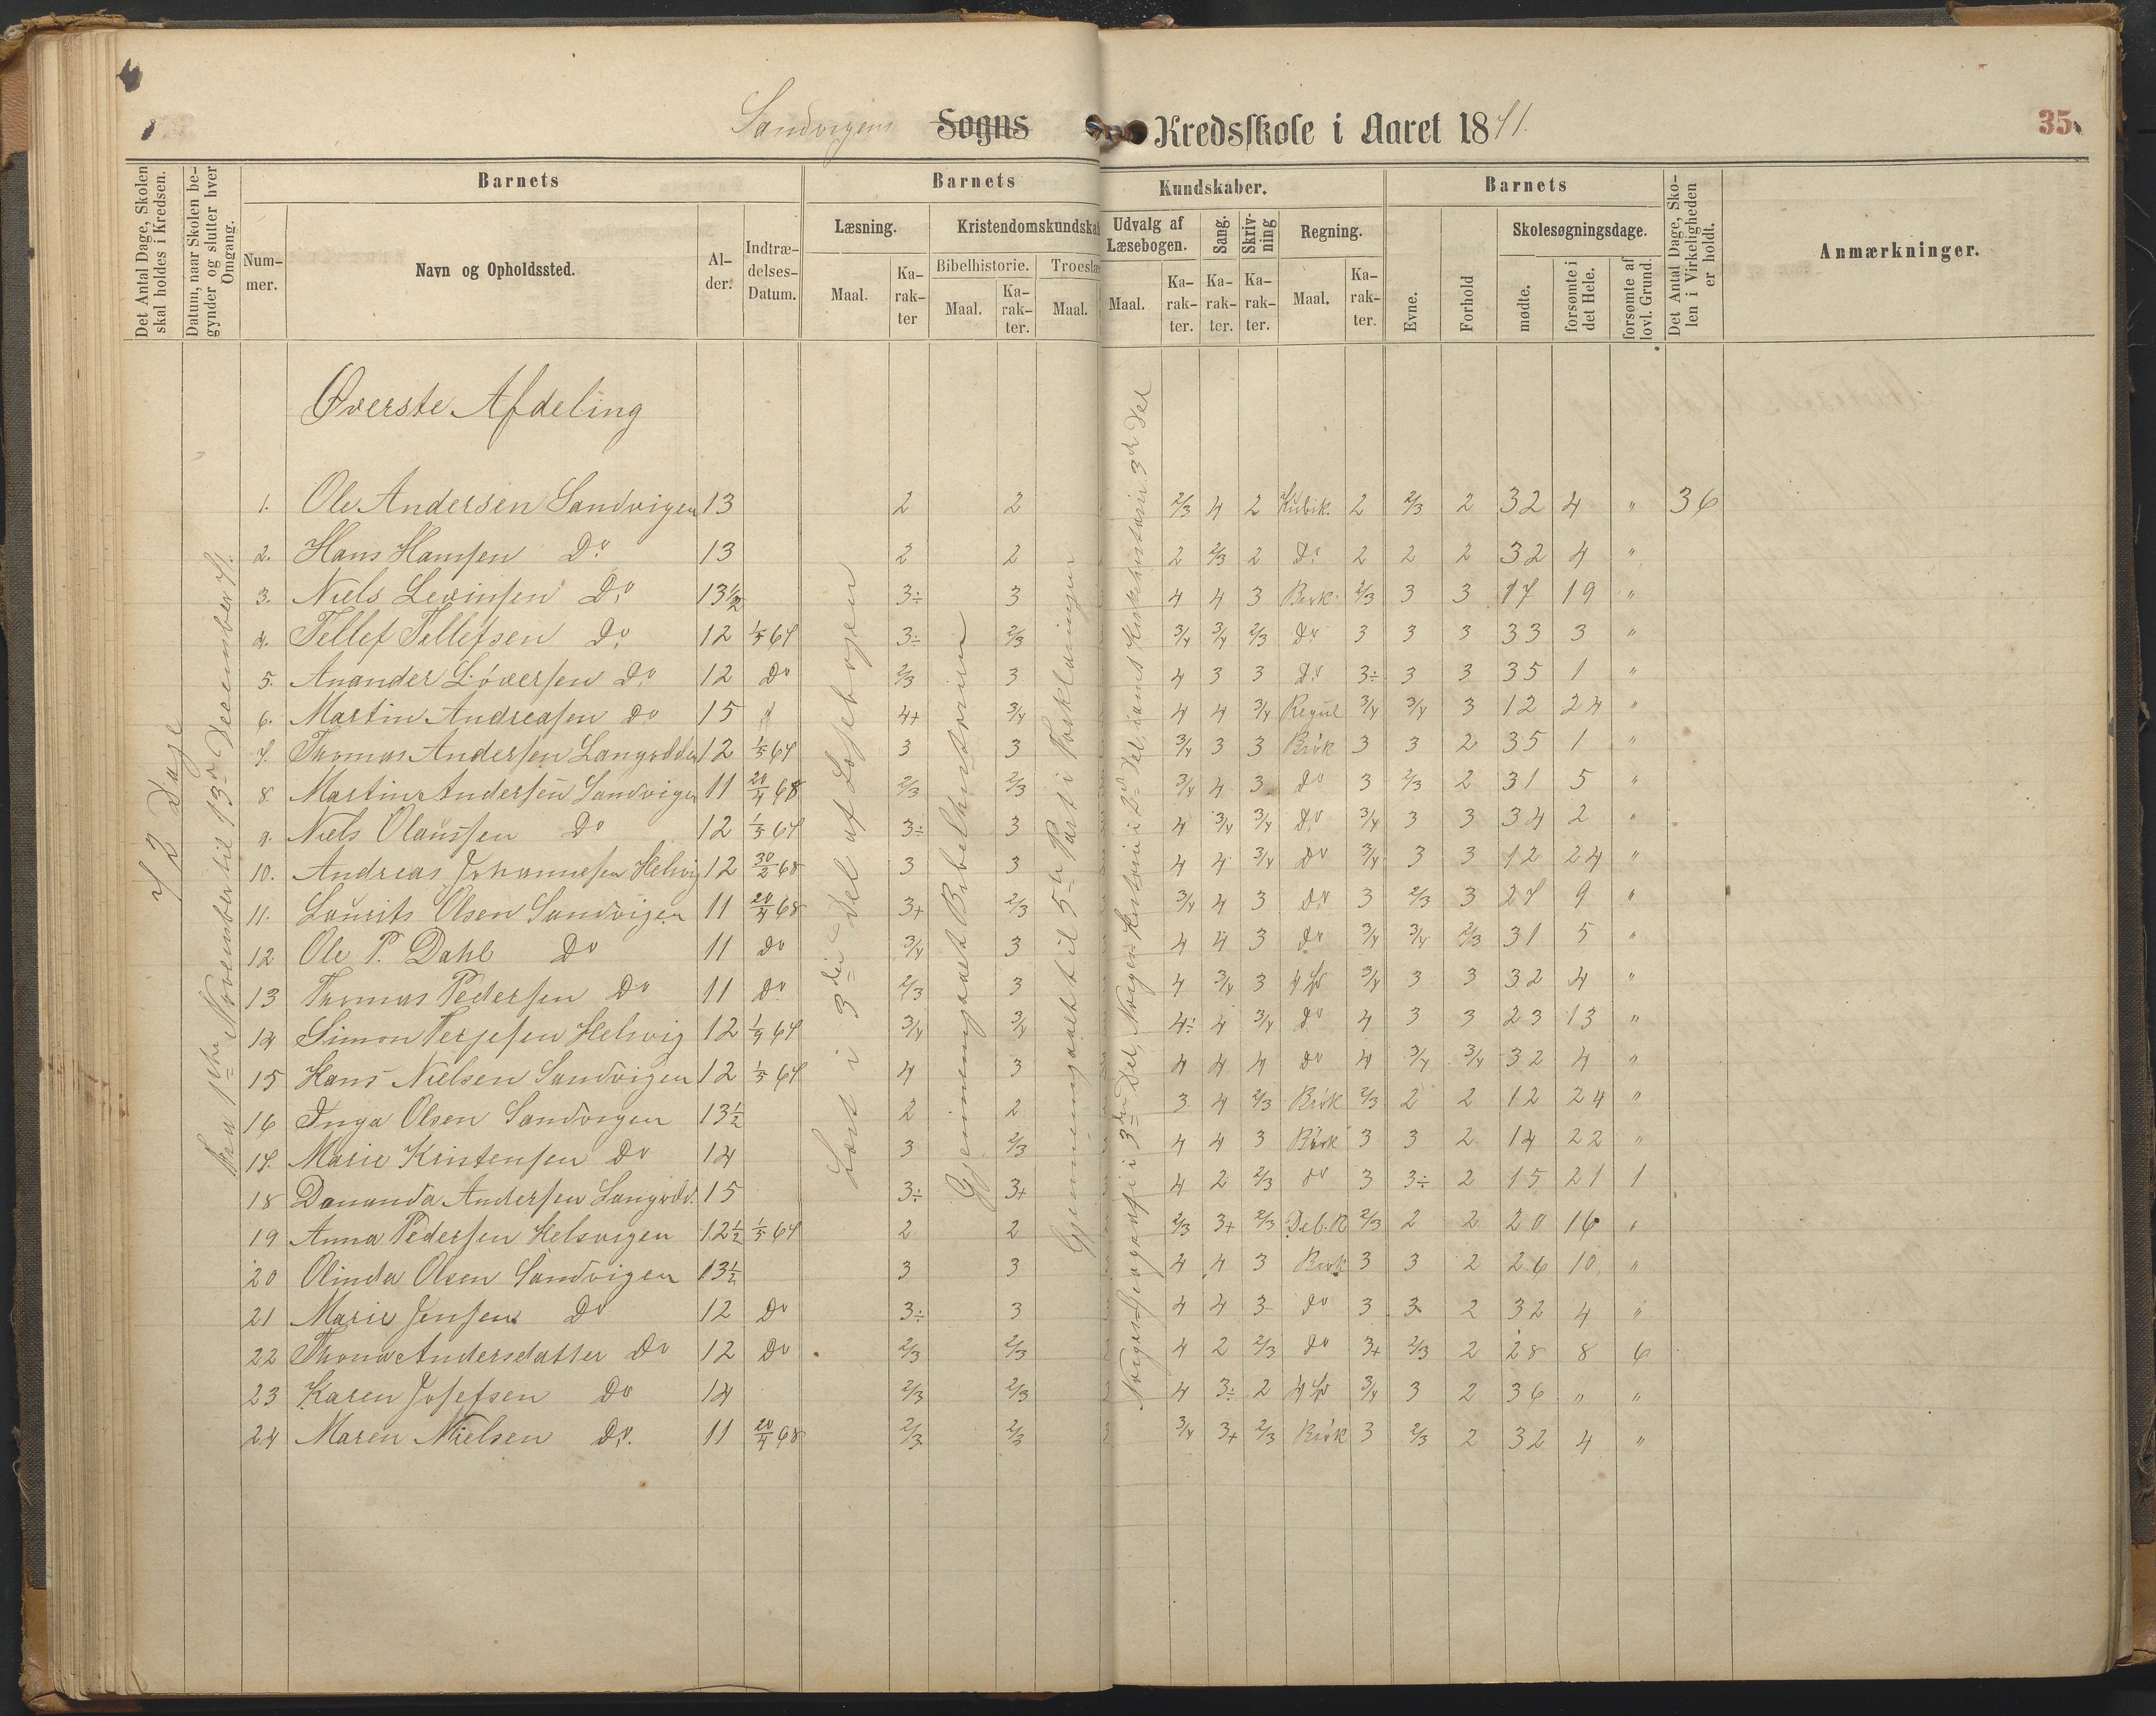 Sandvigens Sogns Kredsskole i Aaret 1871.
35
Det Antal Dage, Skolen skal holdes i Kredsen.
Datum, naar Skolen begynder og slutter hver Omgang.
Barnets
Barnets
Kundskaber.
Barnets
Det Antal Dage, Skolen i Virkeligheden er holdt.
Anmærkninger.
Nummer.
Navn og Opholdssted.
Alder.
Indtrædelses-Datum.
Læsning.
Kristendomskundskab
Udvalg af Læsebogen.
Sang.
Skrivning
Regning.
Evne.
Forhold
Skolesøgningsdage.
Maal.
Karakter
Bibelhistorie.
Troeslæ
Maal.
Karakter.
Maal.
Maal.
Karakter.
Karakter.
Karakter.
Maal.
Karakter.
mødte.
forsømte i det Hele.
forsømte af lovl. Grund.
72 Dage
Fra 1ste November til 13de December 71.
Læst i 3die Del af Læsebogen
Gjennemgaaet Bibelhistorien
Gjennemgaaet til 5te Part i Forklaringen
Norges Geografi i 3die Del, Norges Historie i 2den Del, samt Kirkehistorien 3die Del
Øverste Afdeling
1. Ole Andersen Sandvigen 13 2 2 2/3 4 2 Kubik. 2 2/3 2 32 4 " 36
2. Hans Hansen Do 13 2 2 2 2/3 2 Do 2 2 2 32 4 "
3. Niels Levinsen Do 13½ 3÷ 3 4 4 3 Brøk. 2/3 3 3 17 19 "
4. Tellef Tellefsen Do 12 1/5 67 3÷ 2/3 3/4 3/4 2/3 Do 3 3 3 33 3 "
5. Anander Løversen Do 12 Do 2/3 3 4 3 3 Do 3÷ 3 3 35 1 "
6. Martin Andreasen Do 15 " 4+ 3/4 4 4 3/4 Regul 3/4 3/4 3 12 24 "
7. Thomas Andersen Langodden 12 1/5 67 3 3 3/4 3 3 Brøk 3 3 2 35 1 "
8. Martin Andersen Sandvigen 11 20/4 68 2/3 2/3 3/4 4 3 Do 3 2/3 2 31 5 "
9. Niels Olaussen Do 12 1/5 67 3÷ 3 4 3/4 3/4 Do 3/4 3 3 34 2 "
10. Andreas Johannesen Helvig 12 30/2 68 3 3 4 4 3/4 Do 3/4 3 3 12 24 "
11. Laurits Olsen Sandvigen 11 20/4 68 3+ 2/3 3/4 4 3 Do 3 2/3 3 27 9 "
12 Ole P. Dahl Do 11 Do 3/4 3 4 4 3 Do 3/4 3/4 2/3 31 5 "
13 Thomas Pedersen Do 11 Do 2/3 3 4 3/4 3 4 Sp 3/4 3 3 32 4 "
14 Simon Terjesen Helvig 12 1/9 67 3/4 3/4 4÷ 4 3/4 Do 4 3 3 23 13 "
15 Hans Nielsen Sandvigen 12 1/5 67 4 3 4 4 4 Do 4 3/4 3/4 32 4 "
16 Inga Olsen Sandvigen 13½ 2 2 3 4 2/3 Brøk 2/3 2 2 12 24 "
17. Marie Kristensen Do 14 3 2/3 4 4 3 Brøk 3 3 2 14 22 "
18 Dananda Andersen Langodd. 15 3÷ 3+ 4 2 2/3 Do 3 3÷ 2 15 21 1
19 Anna Pedersen Helsvigen 12½ 1/5 67 2 2 2/3 3+ 2/3 Del. R 2/3 2 2 20 16 "
20 Olinda Olsen Sandvigen 13½ 3 3 4 4 3 Brøk 3 3 2 26 10 "
21 Marie Jensen Do 12 Do 3÷ 3 4 4 3 Do 3 3 2 32 4 "
22 Thona Andersdatter Do 12 Do 2/3 2/3 4 2 2/3 Do 3+ 2/3 2 28 8 6
23 Karen Josefsen Do 14 2/3 2/3 4 3÷ 2 4 Sp 3/4 3 2 36 " "
24 Maren Nielsen Do. 11 20/4 68 2/3 2/3 3/4 3+ 2/3 Brøk 3 2/3 2 32 4 "